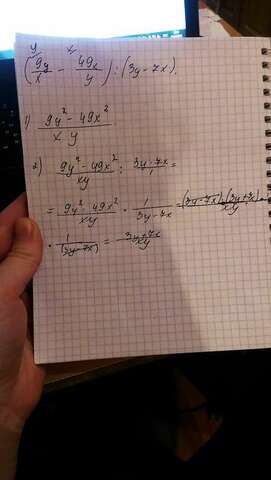 y x
(9y/x - 49x/y) : (3y-7x).
1) 9y² - 49x² / x y
2) 9y² - 49x² / xy : 3y-7x / 1 =
= 9y² - 49x² / xy · 1 / 3y-7x = (3y-7x)·(3y+7x) / xy ·
· 1 / (3y-7x) = 3y+7x / xy